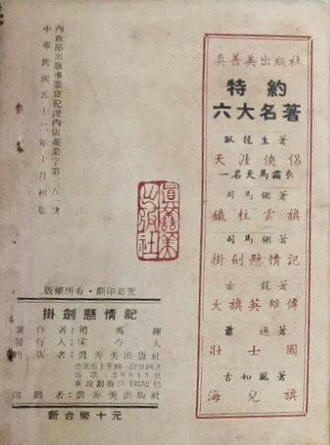 真善美出版社
特約
六大名著
臥龍生著
天涯俠侶
一名天馬霜衣
司馬翎著
鐵柱雲旗
司馬翎著
掛劍懸情記
古龍著
大旗英雄傳
蕭逸著
壯士圖
古如風著
海兒旗
內政部出版事業登記證內版臺業字第
中華民國五十二年十月初版
真善美出版社
版權所有・翻印必究
掛劍懸情記
著作者：司馬翎
發行人：宋今人
出版者：真善美出版社
印刷者：真善美出版社
新台幣十元